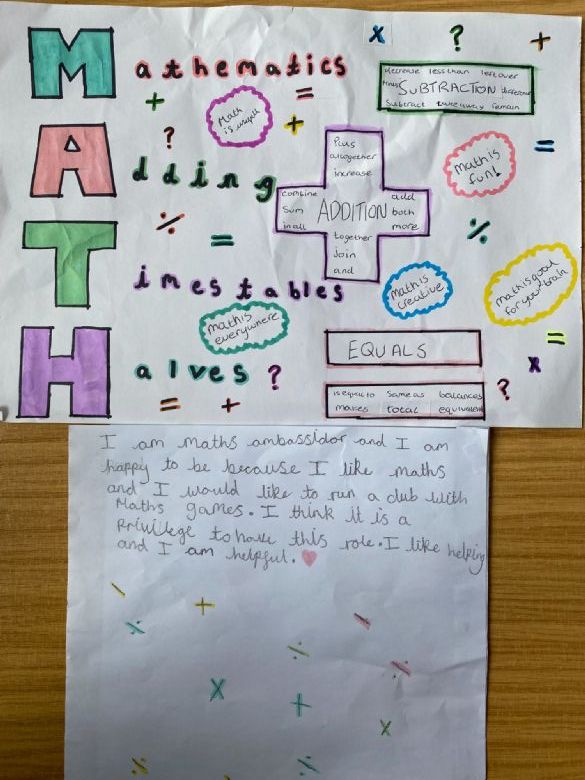 x ? +
M athematics
decrease less than left over
minus SUBTRACTION difference
Subtract take away remain
+ =
Math
is usefull
+
A dding
?
Plus
altogether
increase
combine
Sum
in all
ADDITION
add
both
more
together
join
and
math is
fun!
=
÷ =
÷
T imestables
math is
creative
math is good
for your brain
math is
everywhere
EQUALS
=
x
H alves ?
= +
is equal to same as balances
makes total equivalent
?
I am maths ambassidor and I am
happy to be because I like maths
and I would like to run a club with
Maths games. I think it is a
Privilege to have this role. I like helping
and I am helpful. ❤
- +
÷ -
÷ ÷
x +
x
÷ ÷
+